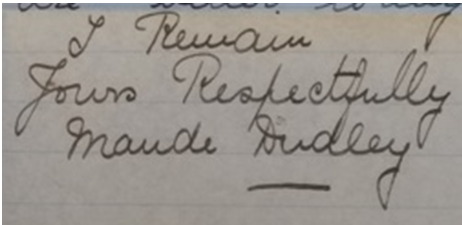 I Remain
Yours Respectfully
Maude Dudley